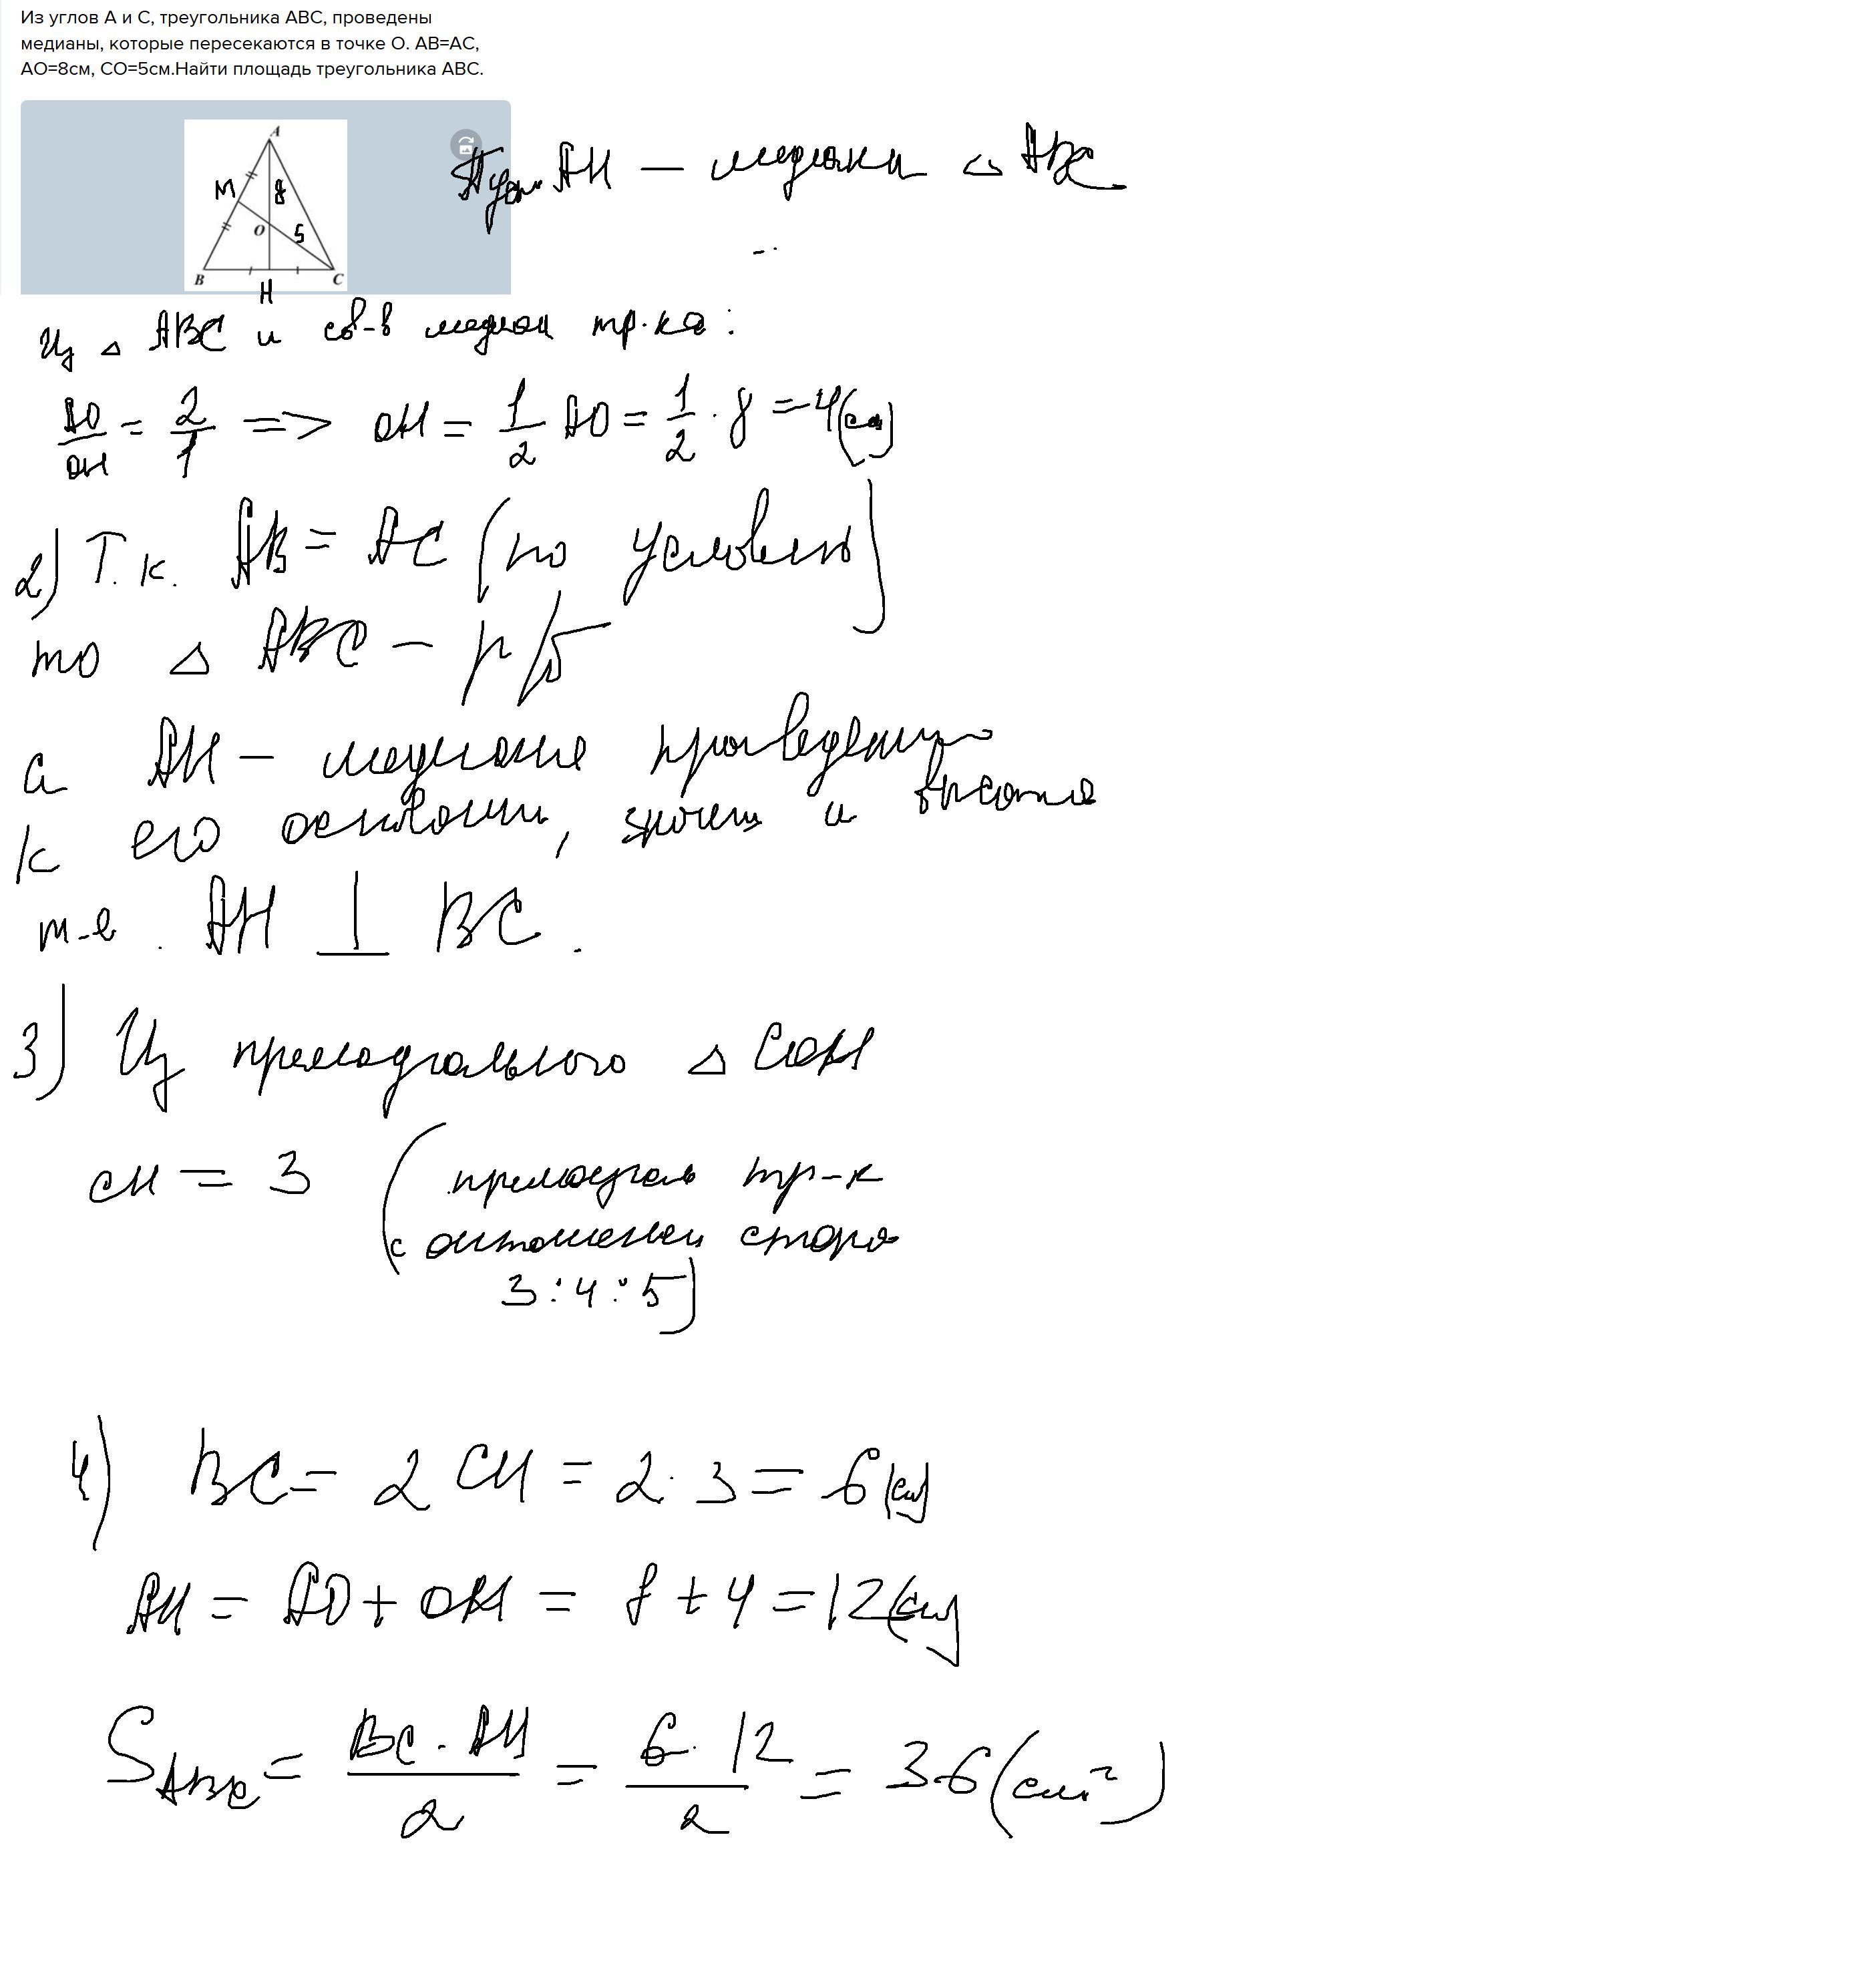 Из углов А и С, треугольника АВС, проведены
медианы, которые пересекаются в точке О. АВ=АС,
АО=8см, СО=5см.Найти площадь треугольника АВС.
A
M
8
O
5
B
C
H
Пусть AH — медиана △ ABC
Из △ ABC и св-в медиан тр-ка:
AO/OH = 2/1 => OH = 1/2 AO = 1/2 · 8 = 4(см)
2) Т.к. AB = AC (по условию)
то △ ABC — р/б
а AH — медиана проведенная
к его основанию, значит и высота
т-е. AH ⊥ BC.
3) Из прямоугольного △ COH
CH = 3 (прямоуголь тр-к
с отношением сторон
3:4:5)
4) BC = 2 CH = 2·3 = 6(см)
AH = AO + OH = 8 + 4 = 12(см)
S ABC = BC · AH / 2 = 6 · 12 / 2 = 36(см²)